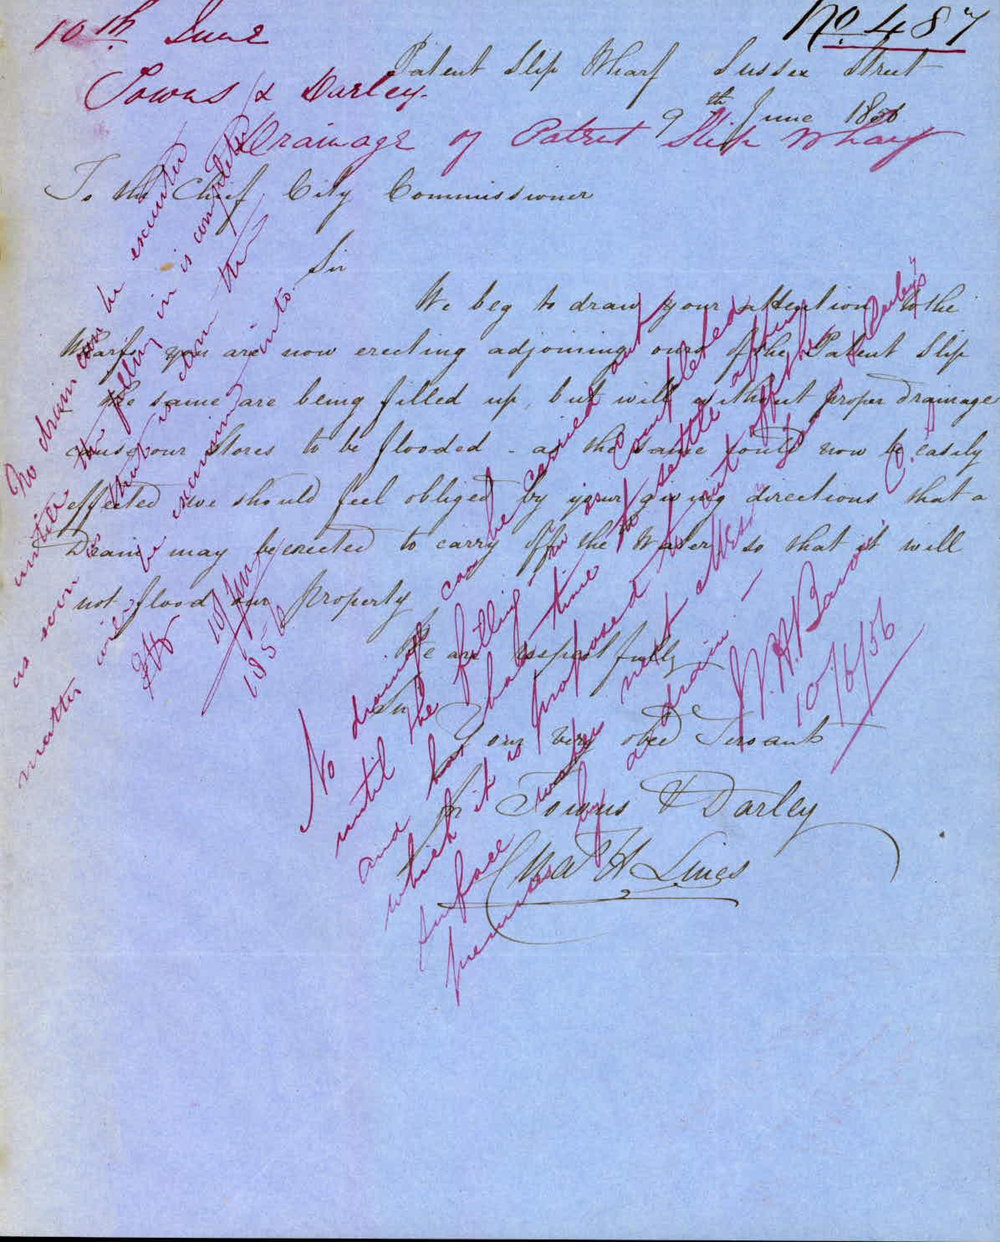 10th June
No. 487
Towns & Darley.
Patent Slip Wharf Sussex Street
9th June 1856
Drainage of Patent Slip Wharf
To the Chief City Commissioner
Sir
We beg to draw your attention to the
Wharf you are now erecting adjoining ours of the Patent Slip
the same are being filled up, but will without proper drainage
cause our Stores to be flooded - as the same could now be easily
effected we should feel obliged by your giving directions that a
Drain may be erected to carry off the Water so that it will
not flood our property
We are respectfully
Sir
Your very obed Servants
for Towns & Darley
Lines
No drain can be executed
until the filling in is completed
as soon as that is done the
matter will be enquired into
10 June
1856
No drainage can be carried out
until the filling in is completed
and has had time to settle after
which it is proposed to cut off the
surface water next Messrs Towns & Darley's
premises by a drain. -
C. S
10/6/56